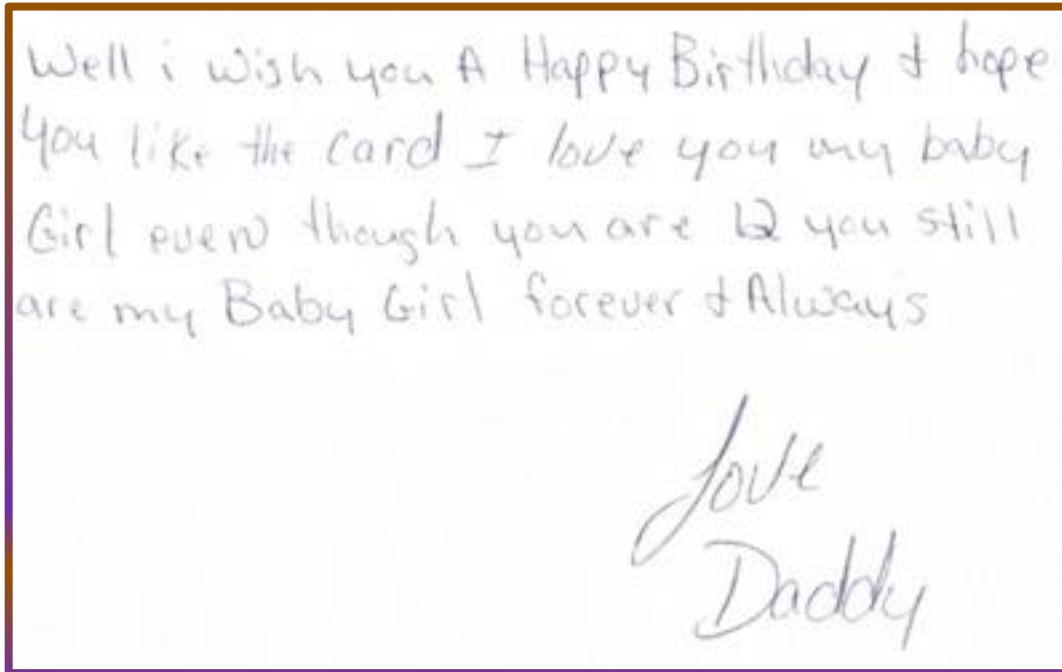 Well i wish you A Happy Birthday & hope
you like the card I love you my baby
Girl even though you are 12 you still
are my Baby Girl forever & Always
Love
Daddy